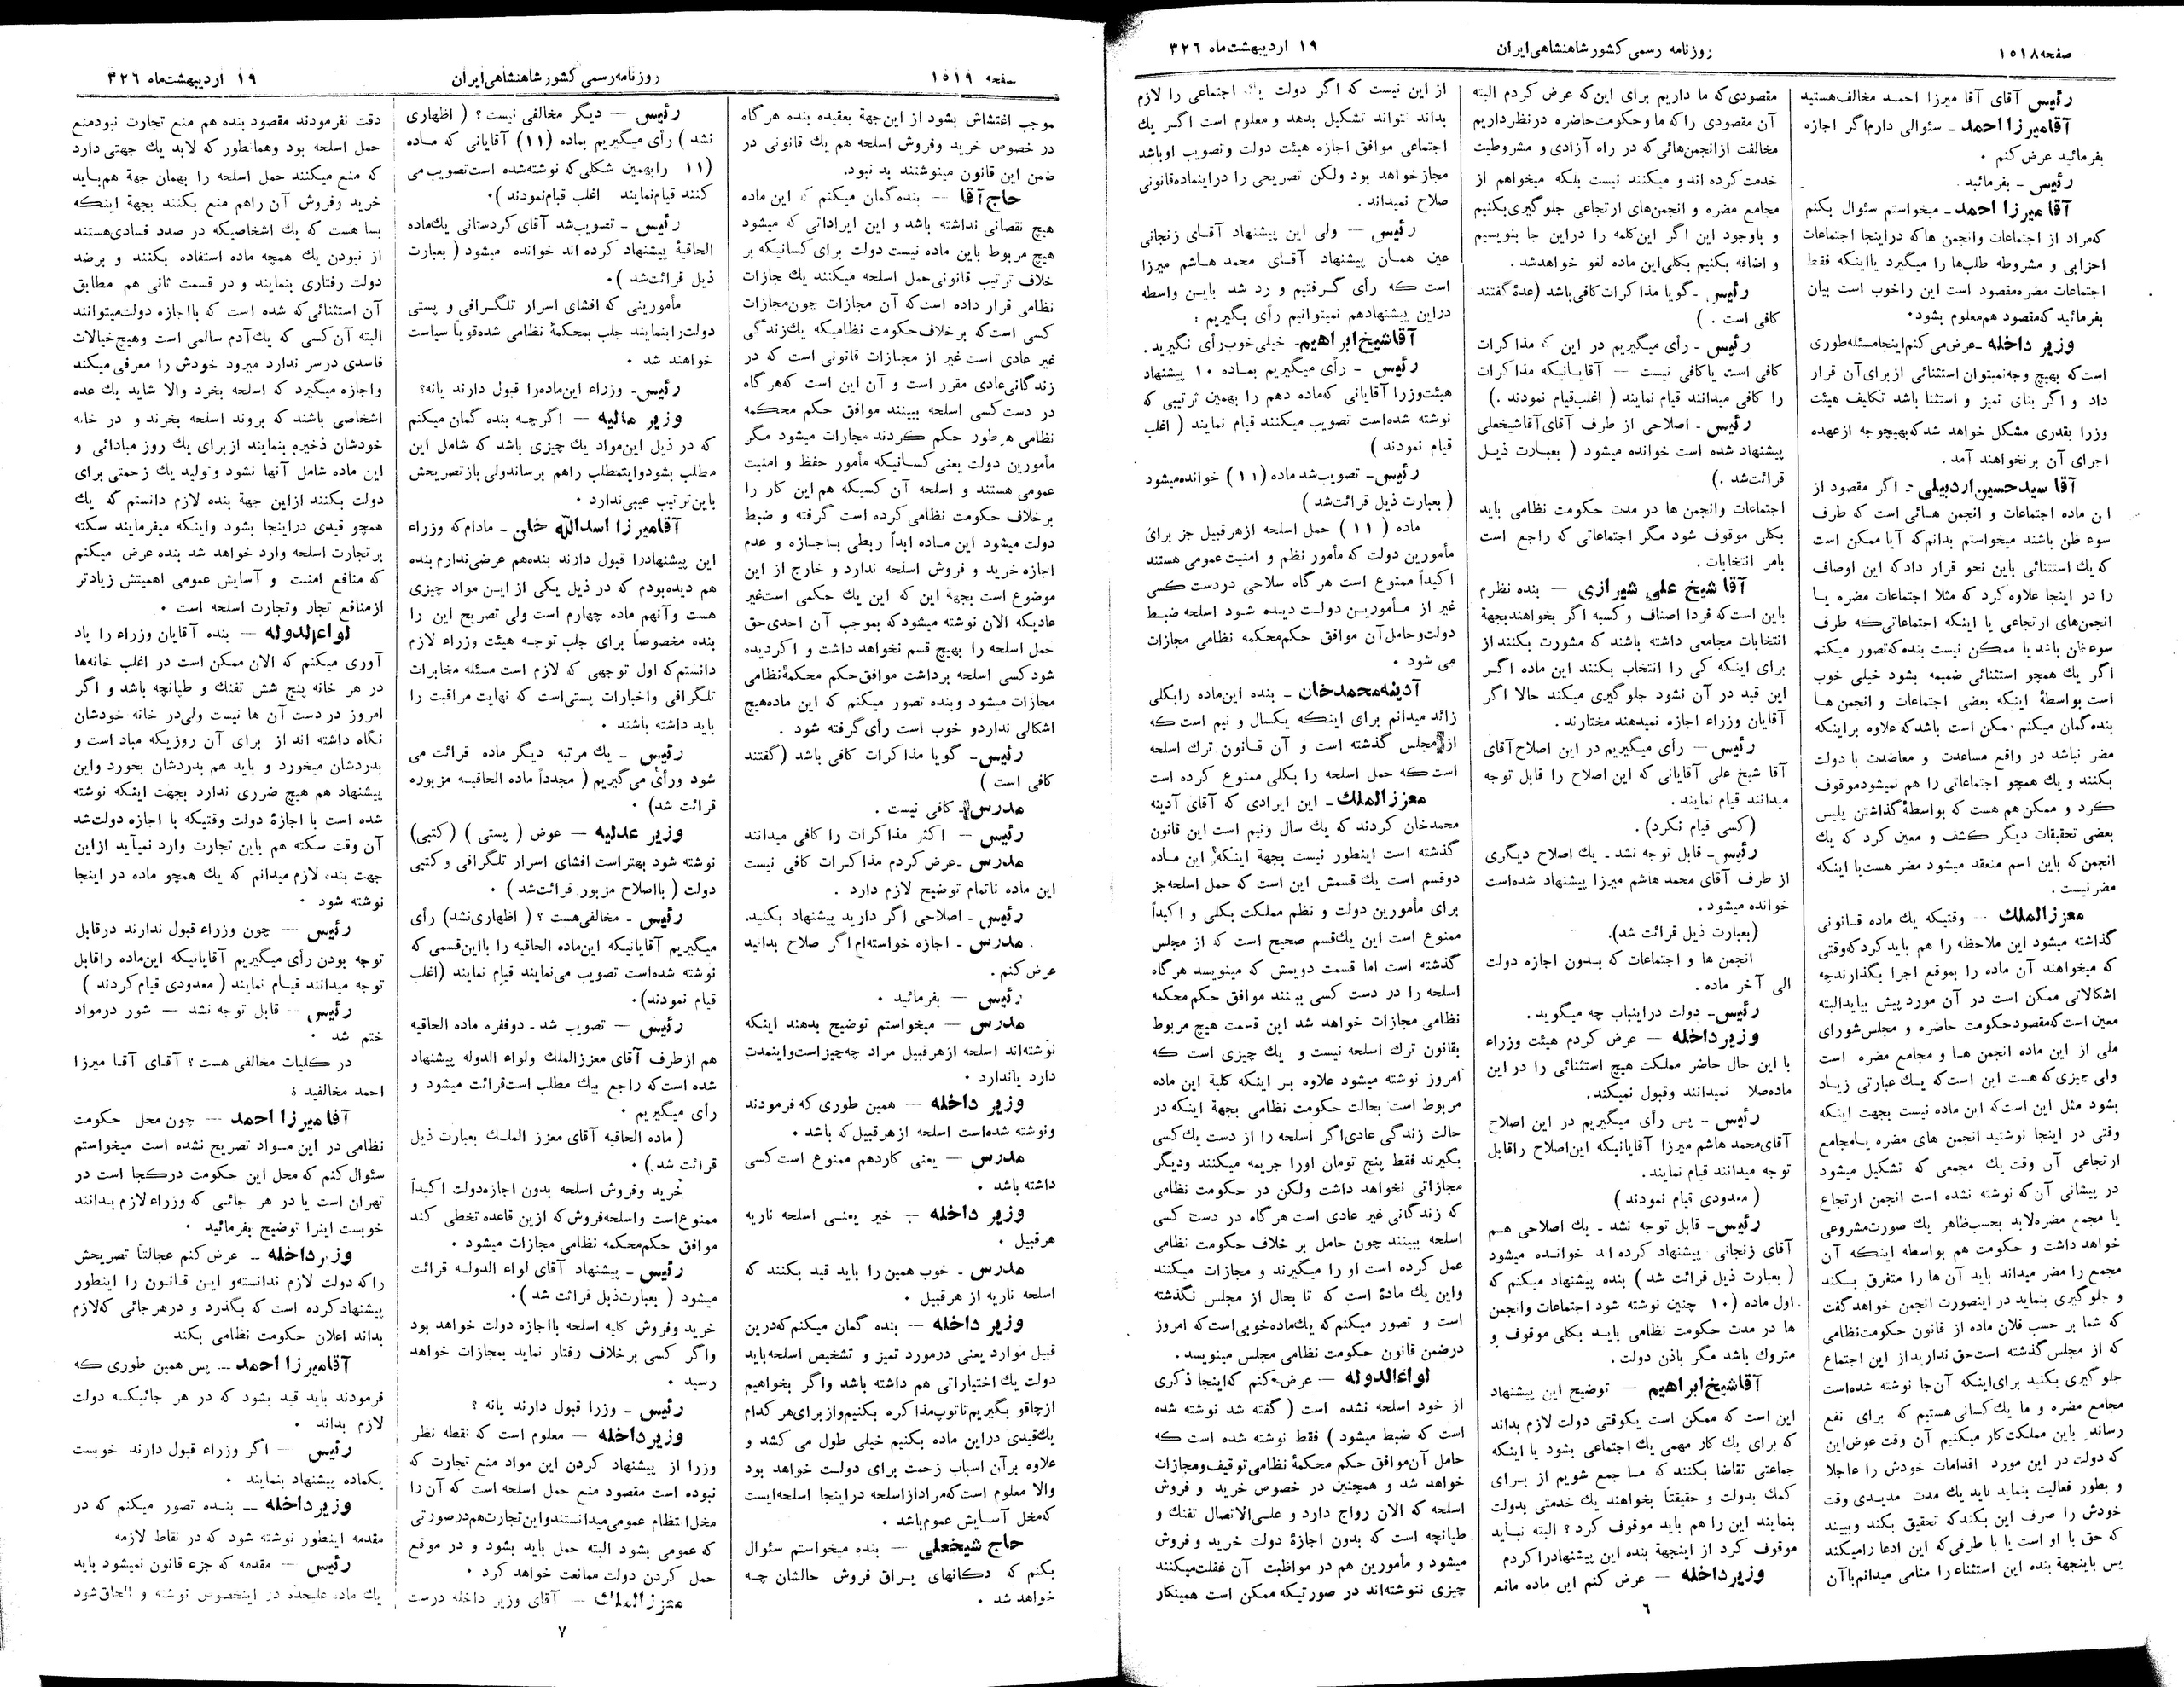 صفحه ۱۵۱۸
روزنامه رسمی کشور شاهنشاهی ایران
۱۹ اردیبهشت ماه ۳۲۶
رئیس آقای آقا میرزا احمد مخالف هستید
آقا میرزا احمد ـ سئوالی دارم اگر اجازه
بفرمائید عرض کنم .
رئیس ـ بفرمائید .
آقا میرزا احمد ـ میخواستم سئوال بکنم
که مراد از اجتماعات وانجمن ها که دراینجا اجتماعات
احزابی و مشروطه طلب‌ها را میگیرد یا اینکه فقط
اجتماعات مضره مقصود است این را خوب است بیان
بفرمائید که مقصود هم معلوم بشود.
وزیر داخله ـ عرض می کنم اینجا مسئله طوری
است که بهیچ وجه نمیتوان استثنائی از برای آن قرار
داد و اگر بنای تمیز و استثنا باشد تکلیف هیئت
وزرا بقدری مشکل خواهد شد که بهیچوجه از عهده
اجرای آن بر نخواهند آمد .
آقا سید حسین اردبیلی ـ اگر مقصود از
این ماده اجتماعات و انجمن هائی است که طرف
سوء ظن باشند میخواستم بدانم که آیا ممکن است
که یك استثنائی باین نحو قرار داد که این اوصاف
را در اینجا علاوه کرد که مثلا اجتماعات مضره یا
انجمن‌های ارتجاعی یا اینکه اجتماعاتی که طرف
سوء ظن باشد یا ممکن نیست بنده که تصور میکنم
اگر یك همچو استثنائی ضمیمه بشود خیلی خوب
است بواسطهٔ اینکه بعضی اجتماعات و انجمن ها
بنده گمان میکنم ممکن است باشد که علاوه بر اینکه
مضر نباشد در واقع مساعدت و معاضدت با دولت
بکنند و یك همچو اجتماعاتی را هم نمیشود موقوف
کرد و ممکن هم هست که بواسطهٔ گذاشتن پلیس
بعضی تحقیقات دیگر کشف و معین کرد که یك
انجمن که باین اسم منعقد میشود مضر هست یا اینکه
مضر نیست .
معزز الملك ـ وقتیکه یك ماده قانونی
گذاشته میشود این ملاحظه را هم باید کرد که وقتی
که میخواهند آن ماده را بموقع اجرا بگذارند چه
اشکالاتی ممکن است در آن مورد پیش بیاید البته
معین است که مقصود حکومت حاضره و مجلس شورای
ملی از این ماده انجمن ها و مجامع مضره است
ولی چیزی که هست این است که یك عبارتی زیاد
بشود مثل این است که این ماده نیست بجهت اینکه
وقتی در اینجا نوشتید انجمن های مضره یا مجامع
ارتجاعی آن وقت یك مجمعی که تشکیل میشود
در پیشانی آن که نوشته نشده است انجمن ارتجاع
یا مجمع مضره لابد بحسب ظاهر یك صورت مشروعی
خواهد داشت و حکومت هم بواسطه اینکه آن
مجمع را مضر میداند باید آن ها را متفرق بکند
و جلوگیری بنماید در اینصورت انجمن خواهد گفت
که شما بر حسب فلان ماده از قانون حکومت نظامی
که از مجلس گذشته است حق ندارید از این اجتماع
جلو گیری بکنید برای اینکه آن جا نوشته شده است
مجامع مضره و ما یك کسانی هستیم که برای نفع
رساندن باین مملکت کار میکنیم آن وقت عوض این
که دولت در این مورد اقدامات خودش را عاجلا
و بطور فعالیت بنماید باید یك مدت مدیدی وقت
خودش را صرف این بکند که تحقیق بکند وببیند
که حق با او است یا با طرفی که این ادعا را میکند
پس باینجهة بنده این استثناء را منافی میدانم با آن
مقصودی که ما داریم برای این که عرض کردم البته
آن مقصودی را که ما و حکومت حاضره در نظر داریم
مخالفت از انجمن‌هائی که در راه آزادی و مشروطیت
خدمت کرده اند و میکنند نیست بلکه میخواهم از
مجامع مضره و انجمن‌های ارتجاعی جلو گیری بکنیم
و باوجود این اگر این کلمه را در این جا بنویسیم
و اضافه بکنیم بکلی این ماده لغو خواهد شد .
رئیس ـ گویا مذاکرات کافی باشد (عدهٔ گفتند
کافی است . )
رئیس ـ رأی میگیریم در این که مذاکرات
کافی است یا کافی نیست — آقایانیکه مذاکرات
را کافی میدانند قیام نمایند ( اغلب قیام نمودند .)
رئیس ـ اصلاحی از طرف آقای آقا شیخعلی
پیشنهاد شده است خوانده میشود ( بعبارت ذیل
قرائت شد .)
اجتماعات وانجمن ها در مدت حکومت نظامی باید
بکلی موقوف شود مگر اجتماعاتی که راجع است
بامر انتخابات .
آقا شیخ علی شیرازی — بنده نظرم
باین است که فردا اصناف و کسبه اگر بخواهند بجهة
انتخابات مجامعی داشته باشند که مشورت بکنند از
برای اینکه کی را انتخاب بکنند این ماده اگر
این قید در آن نشود جلو گیری میکند حالا اگر
آقایان وزراء اجازه نمیدهند مختارند .
رئیس — رأی میگیریم در این اصلاح آقای
آقا شیخ علی آقایانی که این اصلاح را قابل توجه
میدانند قیام نمایند .
(کسی قیام نکرد) .
رئیس ـ قابل توجه نشد ـ یك اصلاح دیگری
از طرف آقای محمد هاشم میرزا پیشنهاد شده است
خوانده میشود .
(بعبارت ذیل قرائت شد).
انجمن ها و اجتماعات که بدون اجازه دولت
الی آخر ماده .
رئیس ـ دولت در اینباب چه میگوید .
وزیر داخله — عرض کردم هیئت وزراء
با این حال حاضر مملکت هیچ استثنائی را در این
ماده صلاح نمیدانند وقبول نمیکند .
رئیس ـ پس رأی میگیریم در این اصلاح
آقای محمد هاشم میرزا آقایانیکه این اصلاح را قابل
توجه میدانند قیام نمایند .
( معدودی قیام نمودند )
رئیس ـ قابل توجه نشد ـ یك اصلاحی هم
آقای زنجانی پیشنهاد کرده اند خوانده میشود
( بعبارت ذیل قرائت شد ) بنده پیشنهاد میکنم که
اول ماده (۱۰ چنین نوشته شود اجتماعات وانجمن
ها در مدت حکومت نظامی باید بکلی موقوف و
متروك باشد مگر باذن دولت .
آقا شیخ ابراهیم — توضیح این پیشنهاد
این است که ممکن است یکوقتی دولت لازم بداند
که برای یك کار مهمی یك اجتماعی بشود یا اینکه
جماعتی تقاضا بکنند که ما جمع شویم از برای
کمك بدولت و حقیقتاً بخواهند یك خدمتی بدولت
بنمایند این را هم باید موقوف کرد ؟ البته نباید
موقوف کرد از اینجهة بنده این پیشنهاد را کردم
وزیر داخله — عرض کنم این ماده مانع
از این نیست که اگر دولت یك اجتماعی را لازم
بداند نتواند تشکیل بدهد و معلوم است اگر یك
اجتماعی موافق اجازه هیئت دولت وتصویب او باشد
مجاز خواهد بود ولکن تصریحی را در این ماده قانونی
صلاح نمیداند .
رئیس — ولی این پیشنهاد آقای زنجانی
عین همان پیشنهاد آقای محمد هاشم میرزا
است که رأی گرفتیم و رد شد باین واسطه
در این پیشنهاد هم نمیتوانیم رأی بگیریم :
آقا شیخ ابراهیم ـ خیلی خوب رأی نگیرید .
رئیس ـ رأی میگیریم بماده ۱۰ پیشنهاد
هیئت وزرا آقایانی که ماده دهم را بهمین ترتیبی که
نوشته شده است تصویب میکنند قیام نمایند ( اغلب
قیام نمودند )
رئیس ـ تصویب شد ماده (۱۱) خوانده میشود
( بعبارت ذیل قرائت شد )
ماده ( ۱۱ ) حمل اسلحه از هر قبیل جز برای
مأمورین دولت که مأمور نظم و امنیت عمومی هستند
اکیداً ممنوع است هر گاه سلاحی در دست کسی
غیر از مأمورین دولت دیده شود اسلحه ضبط
دولت و حامل آن موافق حکم محکمه نظامی مجازات
می شود .
آدینه محمد خان ـ بنده این ماده را بکلی
زائد میدانم برای اینکه یکسال و نیم است که
از مجلس گذشته است و آن قانون ترك اسلحه
است که حمل اسلحه را بکلی ممنوع کرده است
معزز الملك ـ این ایرادی که آقای آدینه
محمد خان کردند که یك سال ونیم است این قانون
گذشته است اینطور نیست بجهة اینکه این ماده
دوقسم است یك قسمش این است که حمل اسلحه جز
برای مأمورین دولت و نظم مملکت بکلی و اکیداً
ممنوع است این یك قسم صحیح است که از مجلس
گذشته است اما قسمت دویمش که مینویسد هر گاه
اسلحه را در دست کسی ببینند موافق حکم محکمه
نظامی مجازات خواهد شد این قسمت هیچ مربوط
بقانون ترك اسلحه نیست و یك چیزی است که
امروز نوشته میشود علاوه بر اینکه کلیهٔ این ماده
مربوط است بحالت حکومت نظامی بجهة اینکه در
حالت زندگی عادی اگر اسلحه را از دست یك کسی
بگیرند فقط پنج تومان اورا جریمه میکنند ودیگر
مجازاتی نخواهد داشت ولکن در حکومت نظامی
که زندگانی غیر عادی است هر گاه در دست کسی
اسلحه ببینند چون حامل بر خلاف حکومت نظامی
عمل کرده است او را میگیرند و مجازات میکنند
واین یك مادهٔ است که تا بحال از مجلس نگذشته
است و تصور میکنم که یك ماده خوبی است که امروز
در ضمن قانون حکومت نظامی مجلس مینویسد .
لواء الدوله — عرض میکنم که اینجا ذکری
از خود اسلحه نشده است ( گفته شد نوشته شده
است که ضبط میشود ) فقط نوشته شده است که
حامل آن موافق حکم محکمهٔ نظامی توقیف و مجازات
خواهد شد و همچنین در خصوص خرید و فروش
اسلحه که الان رواج دارد و علی الاتصال تفنك و
طپانچه است که بدون اجازهٔ دولت خرید و فروش
میشود و مأمورین هم در مواظبت آن غفلت میکنند
چیزی ننوشته‌اند در صورتیکه ممکن است همینکار
٦
صفحه ۱۵۱۹
روزنامه رسمی کشور شاهنشاهی ایران
۱۹ اردیبهشت ماه ۳۲۶
موجب اغتشاش بشود از این جهة بعقیده بنده هر گاه
در خصوص خرید وفروش اسلحه هم یك قانونی در
ضمن این قانون مینوشتند بد نبود.
حاج آقا — بنده گمان میکنم که این ماده
هیچ نقصانی نداشته باشد و این ایراداتی که میشود
هیچ مربوط باین ماده نیست دولت برای کسانیکه بر
خلاف ترتیب قانونی حمل اسلحه میکنند یك مجازات
نظامی قرار داده است که آن مجازات چون مجازات
کسی است که بر خلاف حکومت نظامیکه یك زندگی
غیر عادی است غیر از مجازات قانونی است که در
زندگانی عادی مقرر است و آن این است که هر گاه
در دست کسی اسلحه ببینند موافق حکم محکمه
نظامی هر طور حکم کردند مجازات میشود مگر
مأمورین دولت یعنی کسانیکه مأمور حفظ و امنیت
عمومی هستند و اسلحه آن کسیکه هم این کار را
بر خلاف حکومت نظامی کرده است گرفته و ضبط
دولت میشود این ماده ابداً ربطی باجازه و عدم
اجازه خرید و فروش اسلحه ندارد و خارج از این
موضوع است بجهة این که این یك حکمی است غیر
عادیکه الان نوشته میشود که بموجب آن احدی حق
حمل اسلحه را بهیچ قسم نخواهد داشت و اگر دیده
شود کسی اسلحه برداشت موافق حکم محکمهٔ نظامی
مجازات میشود وبنده تصور میکنم که این ماده هیچ
اشکالی ندارد و خوب است رأی گرفته شود .
رئیس ـ گویا مذاکرات کافی باشد (گفتند
کافی است )
مدرس ـ کافی نیست .
رئیس — اکثر مذاکرات را کافی میدانند
مدرس ـ عرض کردم مذاکرات کافی نیست
این ماده ناتمام توضیح لازم دارد .
رئیس ـ اصلاحی اگر دارید پیشنهاد بکنید.
مدرس ـ اجازه خواسته‌ام اگر صلاح بدانید
عرض کنم .
رئیس — بفرمائید .
مدرس — میخواستم توضیح بدهند اینکه
نوشته‌اند اسلحه از هر قبیل مراد چه چیز است و اینمدت
دارد یا ندارد .
وزیر داخله — همین طوری که فرمودند
ونوشته شده است اسلحه از هر قبیل که باشد .
مدرس — یعنی کارد هم ممنوع است کسی
داشته باشد .
وزیر داخله — خیر یعنی اسلحه ناریه
هر قبیل .
مدرس ـ خوب همین را باید قید بکنند که
اسلحه ناریه از هر قبیل .
وزیر داخله — بنده گمان میکنم که درین
قبیل موارد یعنی در مورد تمیز و تشخیص اسلحه باید
دولت یك اختیاراتی هم داشته باشد واگر بخواهیم
از چاقو بگیریم تا توپ مذاکره بکنیم و از برای هر کدام
یك قیدی در این ماده بکنیم خیلی طول می کشد و
علاوه بر آن اسباب زحمت برای دولت خواهد بود
والا معلوم است که مراد از اسلحه در اینجا اسلحه ایست
که مخل آسایش عموم باشد .
حاج شیخعلی — بنده میخواستم سئوال
بکنم که دکانهای یراق فروش حالشان چه
خواهد شد .
رئیس — دیگر مخالفی نیست ؟ ( اظهاری
نشد ) رأی میگیریم بماده (۱۱) آقایانی که ماده
(۱۱ را بهمین شکلی که نوشته شده است تصویب می
کنند قیام نمایند اغلب قیام نمودند ).
رئیس ـ تصویب شد آقای کردستانی یك ماده
الحاقیهٔ پیشنهاد کرده اند خوانده میشود ( بعبارت
ذیل قرائت شد ).
مأمورینی که افشای اسرار تلگرافی و پستی
دولت را بنمایند جلب بمحکمهٔ نظامی شده قویاً سیاست
خواهند شد .
رئیس ـ وزراء این ماده را قبول دارند یا نه ؟
وزیر مالیه — اگرچه بنده گمان میکنم
که در ذیل این مواد یك چیزی باشد که شامل این
مطلب بشود و اینمطلب را هم برساند ولی باز تصریحش
باین ترتیب عیبی ندارد .
آقا میرزا اسدالله خان ـ مادام که وزراء
این پیشنهاد را قبول دارند بنده هم عرضی ندارم بنده
هم دیده بودم که در ذیل یکی از این مواد چیزی
هست وآنهم ماده چهارم است ولی تصریح این را
بنده مخصوصاً برای جلب توجه هیئت وزراء لازم
دانستم که اول توجهی که لازم است مسئله مخابرات
تلگرافی واخبارات پستی است که نهایت مراقبت را
باید داشته باشند .
رئیس ـ یك مرتبه دیگر ماده قرائت می
شود ورأی می گیریم ( مجدداً ماده الحاقیه مزبوره
قرائت شد) .
وزیر عدلیه — عوض ( پستی ) (کتبی)
نوشته شود بهتر است افشای اسرار تلگرافی و کتبی
دولت ( با اصلاح مزبور قرائت شد ) .
رئیس ـ مخالفی هست ؟ ( اظهاری نشد ) رأی
میگیریم آقایانیکه این ماده الحاقیه را با این قسمی که
نوشته شده است تصویب می نمایند قیام نمایند (اغلب
قیام نمودند).
رئیس — تصویب شد ـ دوفقره ماده الحاقیه
هم از طرف آقای معزز الملك ولواء الدوله پیشنهاد
شده است که راجع بیك مطلب است قرائت میشود و
رأی میگیریم .
( ماده الحاقیه آقای معزز الملك بعبارت ذیل
قرائت شد ) .
خرید وفروش اسلحه بدون اجازه دولت اکیداً
ممنوع است واسلحه فروش که ازین قاعده تخطی کند
موافق حکم محکمه نظامی مجازات میشود .
رئیس ـ پیشنهاد آقای لواء الدوله قرائت
میشود ( بعبارت ذیل قرائت شد ).
خرید وفروش کلیه اسلحه با اجازه دولت خواهد بود
واگر کسی بر خلاف رفتار نماید بمجازات خواهد
رسید .
رئیس ـ وزرا قبول دارند یا نه ؟
وزیر داخله — معلوم است که نقطه نظر
وزرا از پیشنهاد کردن این مواد منع تجارت که
نبوده است مقصود منع حمل اسلحه است که آن را
مخل انتظام عمومی میدانستند و این تجارت هم در صورتی
که عمومی بشود البته حمل باید بشود و در موقع
حمل کردن دولت ممانعت خواهد کرد .
معزز الملك — آقای وزیر داخله درست
دقت نفرمودند مقصود بنده هم منع تجارت نبود منع
حمل اسلحه بود وهمانطور که لابد یك جهتی دارد
که منع میکنند حمل اسلحه را بهمان جهة هم باید
خرید وفروش آن را هم منع بکنند بجهة اینکه
بسا هست که یك اشخاصیکه در صدد فسادی هستند
از نبودن یك همچه ماده استفاده بکنند و برضد
دولت رفتاری بنمایند و در قسمت ثانی هم مطابق
آن استثنائی که شده است که با اجازه دولت میتوانند
البته آن کسی که یك آدم سالمی است وهیچ خیالات
فاسدی در سر ندارد میرود خودش را معرفی میکند
واجازه میگیرد که اسلحه بخرد والا شاید یك عده
اشخاصی باشند که بروند اسلحه بخرند و در خانه
خودشان ذخیره بنمایند از برای یك روز مبادائی و
این ماده شامل آنها نشود وتولید یك زحمتی برای
دولت بکنند ازاین جهة بنده لازم دانستم که یك
همچو قیدی در اینجا بشود واینکه میفرمایند سکته
بر تجارت اسلحه وارد خواهد شد بنده عرض میکنم
که منافع امنیت و آسایش عمومی اهمیتش زیادتر
از منافع تجار وتجارت اسلحه است .
لواء الدوله — بنده آقایان وزراء را یاد
آوری میکنم که الان ممکن است در اغلب خانه‌ها
در هر خانه پنج شش تفنك و طپانچه باشد و اگر
امروز در دست آن ها نیست ولی در خانه خودشان
نگاه داشته اند از برای آن روزیکه مباد است و
بدردشان میخورد و باید هم بدردشان بخورد واین
پیشنهاد هم هیچ ضرری ندارد بجهت اینکه نوشته
شده است با اجازهٔ دولت وقتیکه با اجازه دولت شد
آن وقت سکته هم باین تجارت وارد نمیآید از این
جهت بنده لازم میدانم که یك همچو ماده در اینجا
نوشته شود .
رئیس — چون وزراء قبول ندارند در قابل
توجه بودن رأی میگیریم آقایانیکه این ماده را قابل
توجه میدانند قیام نمایند ( معدودی قیام کردند )
رئیس — قابل توجه نشد — شور در مواد
ختم شد .
در کلیات مخالفی هست ؟ آقای آقا میرزا
احمد مخالفید ؟
آقا میرزا احمد — چون محل حکومت
نظامی در این مواد تصریح نشده است میخواستم
سئوال کنم که محل این حکومت در کجا است در
تهران است یا در هر جائی که وزراء لازم بدانند
خوبست اینرا توضیح بفرمائید .
وزیر داخله ـ عرض کنم عجالتاً تصریحش
را که دولت لازم ندانسته و این قانون را اینطور
پیشنهاد کرده است که بگذرد و در هر جائی که لازم
بداند اعلان حکومت نظامی بکند
آقا میرزا احمد ـ پس همین طوری که
فرمودند باید قید بشود که در هر جائیکه دولت
لازم بداند .
رئیس — اگر وزراء قبول دارند خوبست
یکماده پیشنهاد بنمایند .
وزیر داخله ـ بنده تصور میکنم که در
مقدمه اینطور نوشته شود که در نقاط لازمه
رئیس — مقدمه که جزء قانون نمیشود باید
یك ماده علیحده در اینخصوص نوشته و الحاق شود
۷